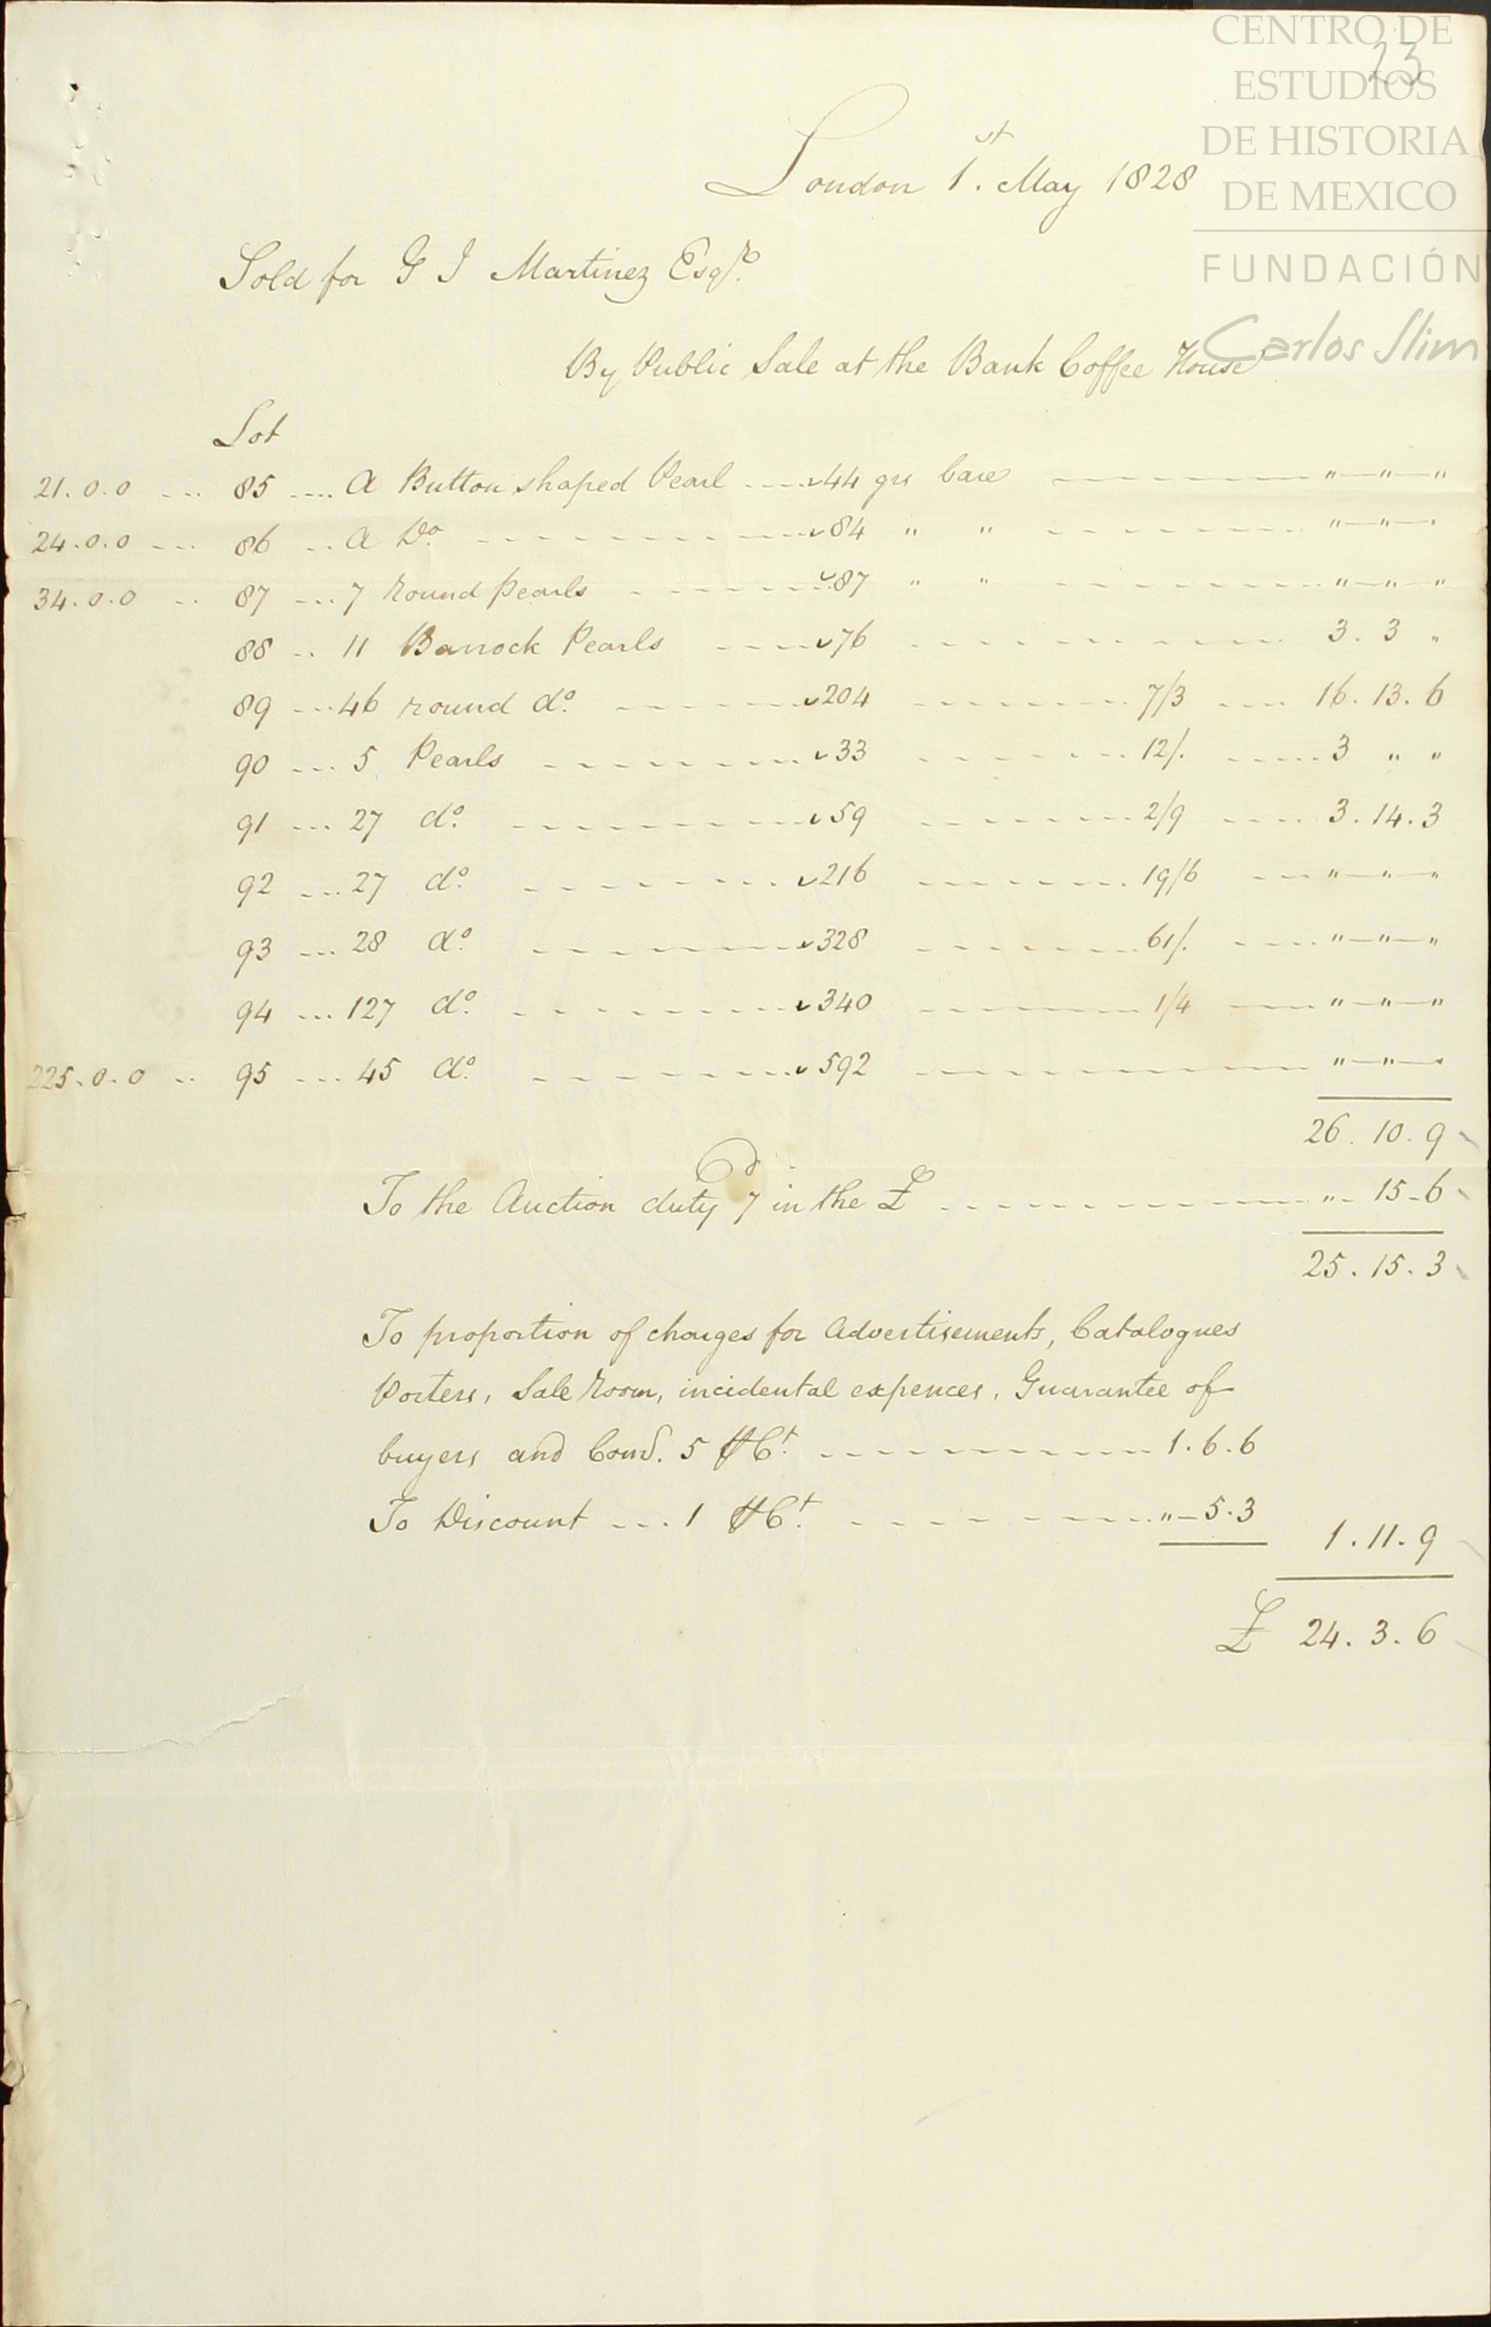 CENTRO DE
ESTUDIOS
DE HISTORIA
DE MEXICO
FUNDACIÓN
Carlos Slim
23
London 1st. May 1828
Sold for G J Martinez Esqre.
By Public Sale at the Bank Coffee House
Lot
21.0.0 --- 85 .... A Button shaped Pearl ---- 44 grs bare ---- " — " — "
24.0.0 --- 86 .. A Do. ---- 84 " " ---- " — " — "
34.0.0 -- 87 --- 7 round pearls ---- 87 " " ---- " — " — "
88 .. 11 Barrock Pearls ---- 76 ---- 3. 3 "
89 --- 46 round do. ---- 204 ---- 7/3 ---- 16. 13. 6
90 --- 5 Pearls ---- 33 ---- 12/. ---- 3 " "
91 --- 27 do. ---- 59 ---- 2/9 ---- 3. 14. 3
92 --- 27 do. ---- 216 ---- 19/6 --- " — " — "
93 --- 28 do. ---- 328 ---- 61/. ---- " — " — "
94 --- 127 do. ---- 340 ---- 1/4 ---- " — " — "
225.0.0 -- 95 --- 45 do. ---- 592 ---- " — " — "
26. 10. 9
To the Auction duty 7d in the £ ---- " - 15 - 6
25. 15. 3
To proportion of charges for Advertisements, Catalogues
Porters, Sale Room, incidental expences, Guarantee of
buyers and Com. 5 ⅌ Ct. ---- 1. 6. 6
To Discount --- 1 ⅌ Ct. ---- " - 5. 3
1. 11. 9
£ 24. 3. 6